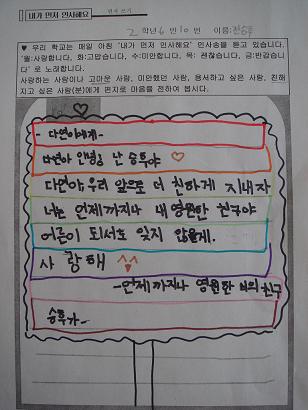 내가 먼저 인사해요
편지 쓰기
2 학년 6 반 10 번 이름:
♥ 우리 학교는 매일 아침 '내가 먼저 인사해요' 인사송을 듣고 있습니다.
'월:사랑합니다, 화:고맙습니다, 수:미안합니다, 목: 괜찮습니다, 금:반갑습니
다' 로 노래합니다.
사랑하는 사람이나 고마운 사람, 미안했던 사람, 용서하고 싶은 사람, 친해
지고 싶은 사람(분)에게 편지로 마음을 전하여 봅시다.
- 다연이에게-
다연아 안녕? 난 승후야
다연아 우리 앞으로 더 친하게 지내자
너는 언제까지나 내 영원한 친구야
어른이 되서도 잊지 않을게.
사 랑 해 ^^
-언제까지나 영원한 너의 친구
승후가-